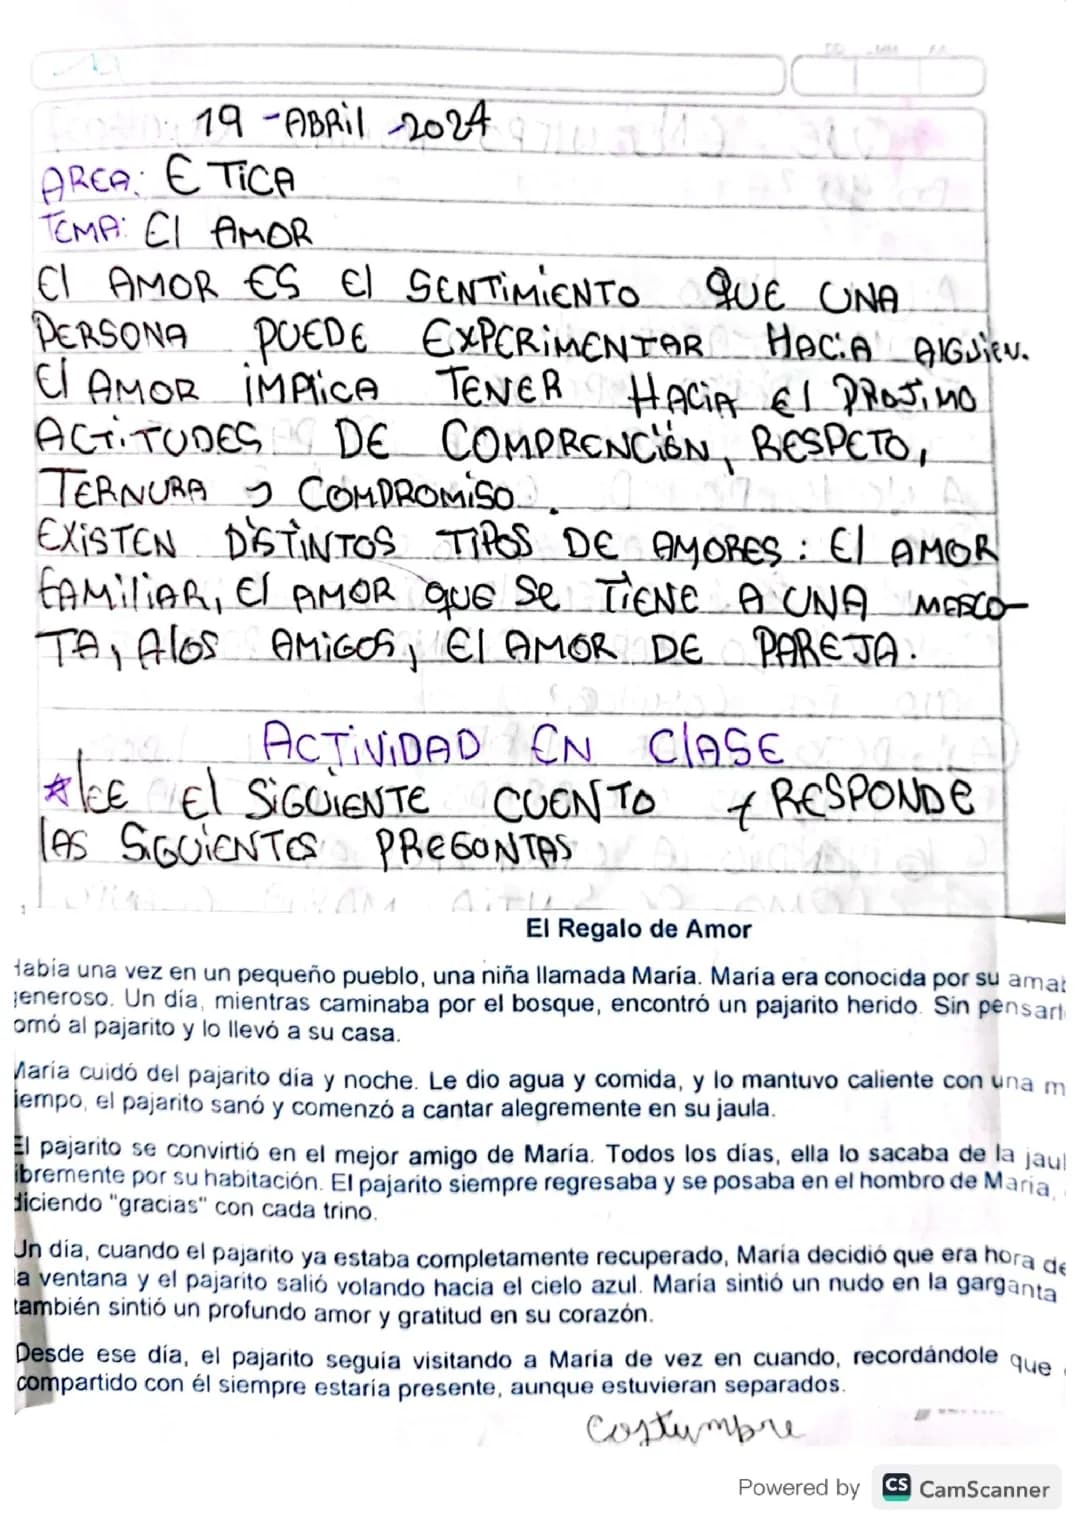 19 - ABRIL - 2024
AREA: ETICA
TEMA: El AMOR
El AMOR ES El SENTIMIENTO QUE UNA
PERSONA PUEDE EXPERIMENTAR HACIA AlGUIEN.
El AMOR IMPlICA TENER HACIA El PROJIMO
ACTITUDES DE COMPRENCIÓN, RESPETO,
TERNURA Y COMPROMISO.
EXISTEN DISTINTOS TIPOS DE AMORES: El AMOR
FAMILIAR, El AMOR QUE SE TIENE A UNA MASCO-
TA, A lOS AMIGOS, El AMOR DE PAREJA.
ACTIVIDAD EN ClASE
*lEE El SIGUIENTE CUENTO Y RESPONDE
lAS SIGUIENTES PREGUNTAS
El Regalo de Amor
Había una vez en un pequeño pueblo, una niña llamada María. María era conocida por su amab
generoso. Un día, mientras caminaba por el bosque, encontró un pajarito herido. Sin pensarl
omó al pajarito y lo llevó a su casa.
María cuidó del pajarito día y noche. Le dio agua y comida, y lo mantuvo caliente con una m
iempo, el pajarito sanó y comenzó a cantar alegremente en su jaula.
El pajarito se convirtió en el mejor amigo de María. Todos los días, ella lo sacaba de la jaul
ibremente por su habitación. El pajarito siempre regresaba y se posaba en el hombro de María,
diciendo "gracias" con cada trino.
Un día, cuando el pajarito ya estaba completamente recuperado, María decidió que era hora de
a ventana y el pajarito salió volando hacia el cielo azul. María sintió un nudo en la garganta
también sintió un profundo amor y gratitud en su corazón.
Desde ese día, el pajarito seguía visitando a María de vez en cuando, recordándole que
compartido con él siempre estaría presente, aunque estuvieran separados.
Costumbre
Powered by CS CamScanner